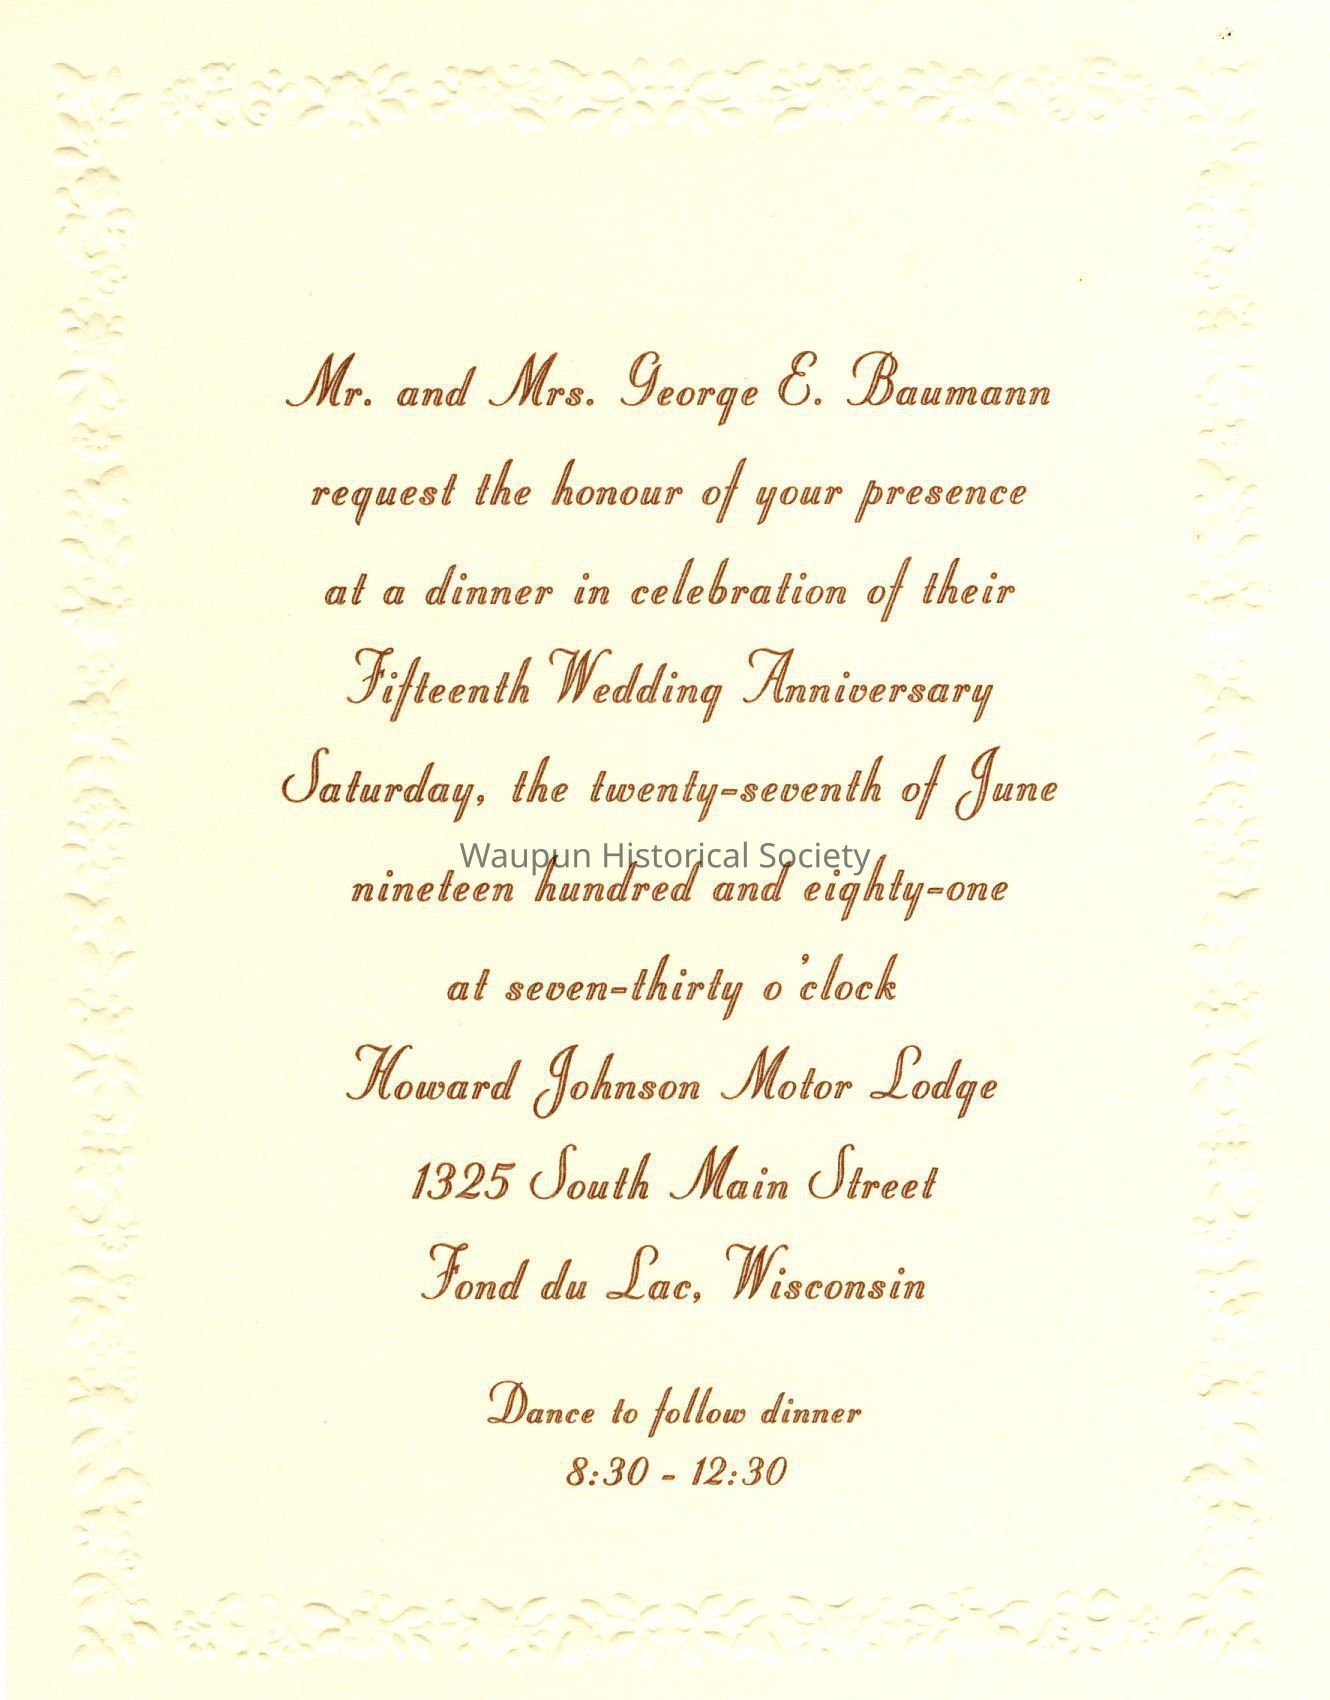 Mr. and Mrs. George E. Baumann
request the honour of your presence
at a dinner in celebration of their
Fifteenth Wedding Anniversary
Saturday, the twenty-seventh of June
Waupun Historical Society
nineteen hundred and eighty-one
at seven-thirty o'clock
Howard Johnson Motor Lodge
1325 South Main Street
Fond du Lac, Wisconsin
Dance to follow dinner
8:30 - 12:30